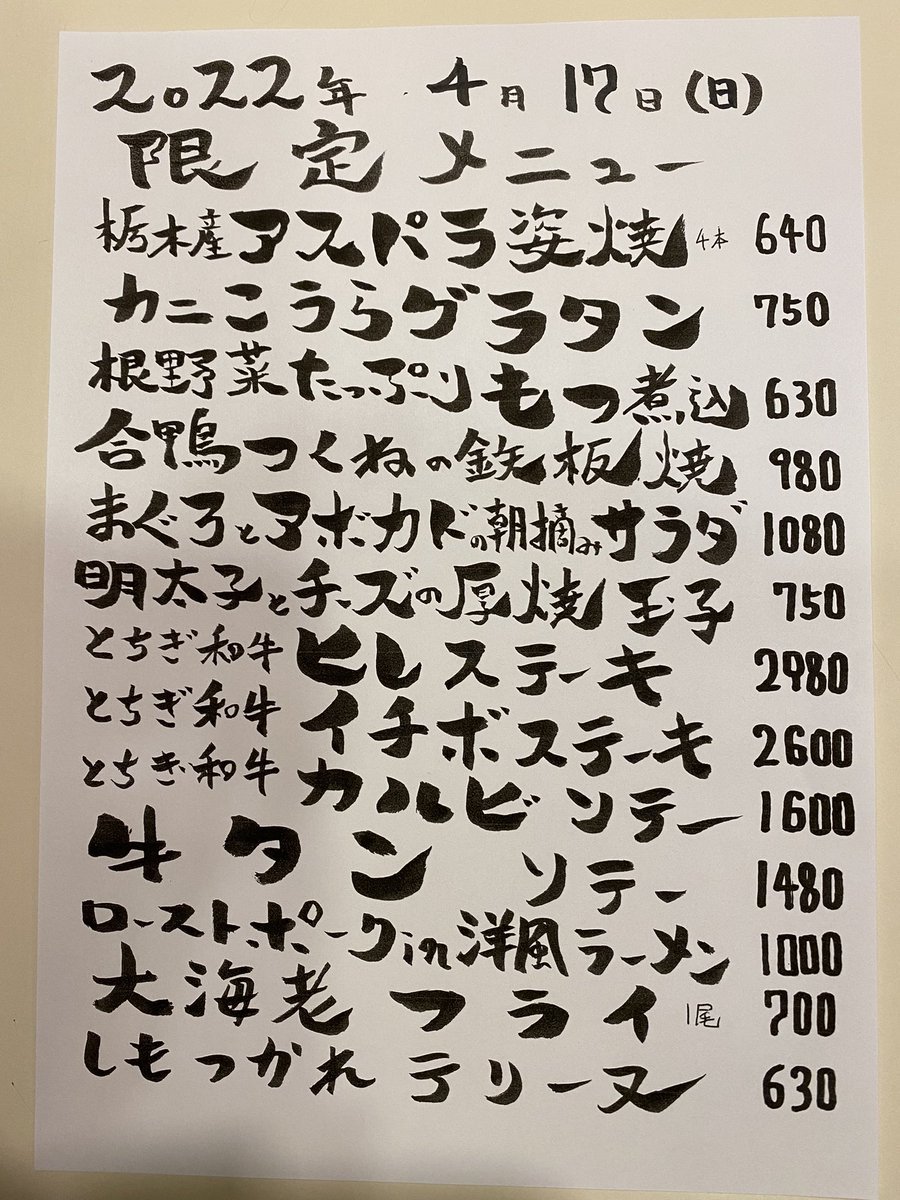 2022年 4月17日(日)
限定メニュー
栃木産アスパラ姿焼 4本 640
カニこうらグラタン 750
根野菜たっぷりもつ煮込 630
合鴨つくねの鉄板焼 980
まぐろとアボカドの朝摘みサラダ 1080
明太子とチーズの厚焼玉子 750
とちぎ和牛 ヒレステーキ 2980
とちぎ和牛 イチボステーキ 2600
とちぎ和牛 カルビソテー 1600
牛タン ソテー 1480
ローストポークin洋風ラーメン 1000
大海老フライ 1尾 700
しもつかれテリーヌ 630